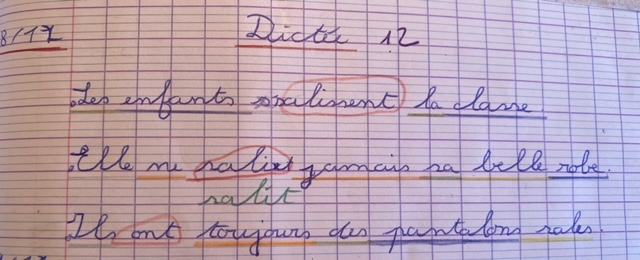 8/17
Dictée 12
Les enfants salissent la classe.
Elle ne salit jamais sa belle robe.
salit
Ils ont toujours des pantalons sales.